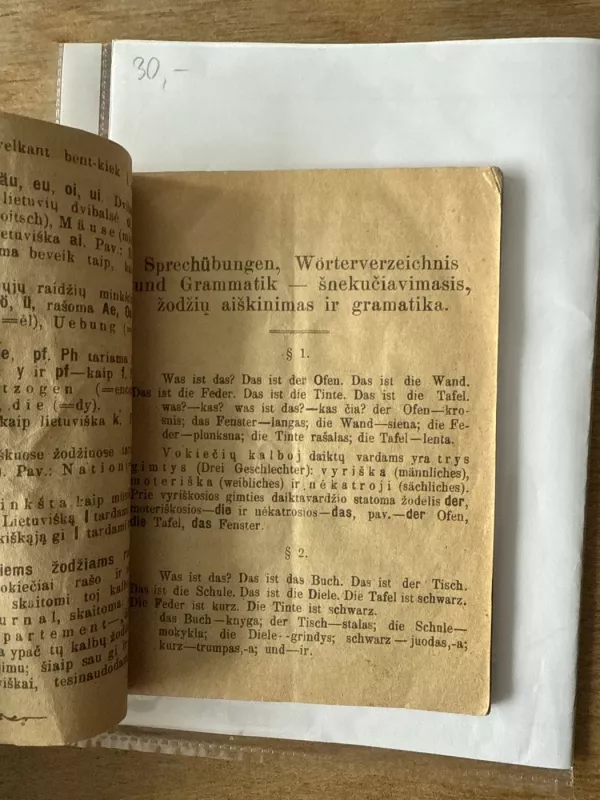 30,–
velkant bent-kiek
äu, eu, oi, ui.
lietuvių dvibalsė
oitsch), Mäuse
etuviška ai. Pav.:
ma beveik taip,
ųjų raidžių
ö, ü, rašoma Ae,
=ėl), Uebung (=
e, pf. Ph tariama
y ir pf—kaip f.
tzogen
die (=dy).
kaip lietuviška k.
škuose žodžiuose
). Pav.: Nation
inkšta, kaip
Lietuvišką l tardami
kiškąją gi l tardami
iems žodžiams
okiečiai rašo ir
skaitomi toj
urnal, skaitoma
partement—
a ypač tų kalbų
imu; šiaip sau gi
viškai, tesinaudodami
Sprechübungen, Wörterverzeichnis
und Grammatik — šnekučiavimasis,
žodžių aiškinimas ir gramatika.
§ 1.
Was ist das? Das ist der Ofen. Das ist die Wand.
Das ist die Feder. Das ist die Tinte. Das ist die Tafel.
was?—kas? was ist das?—kas čia? der Ofen—kro-
snis; das Fenster—langas; die Wand—siena; die Fe-
der—plunksna; die Tinte rašalas; die Tafel—lenta.
Vokiečių kalboj daiktų vardams yra trys
gimtys (Drei Geschlechter): vyriška (männliches),
moteriška (weibliches) ir nėkatroji (sächliches).
Prie vyriškosios gimties daiktavardžio statoma žodelis der,
moteriškosios—die ir nėkatrosios—das, pav.—der Ofen,
die Tafel, das Fenster.
§ 2.
Was ist das? Das ist das Buch. Das ist der Tisch.
Das ist die Schule. Das ist die Diele. Die Tafel ist schwarz.
Die Feder ist kurz. Die Tinte ist schwarz.
das Buch—knyga; der Tisch—stalas; die Schule—
mokykla; die Diele--grindys; schwarz—juodas,-a;
kurz—trumpas,-a; und—ir.